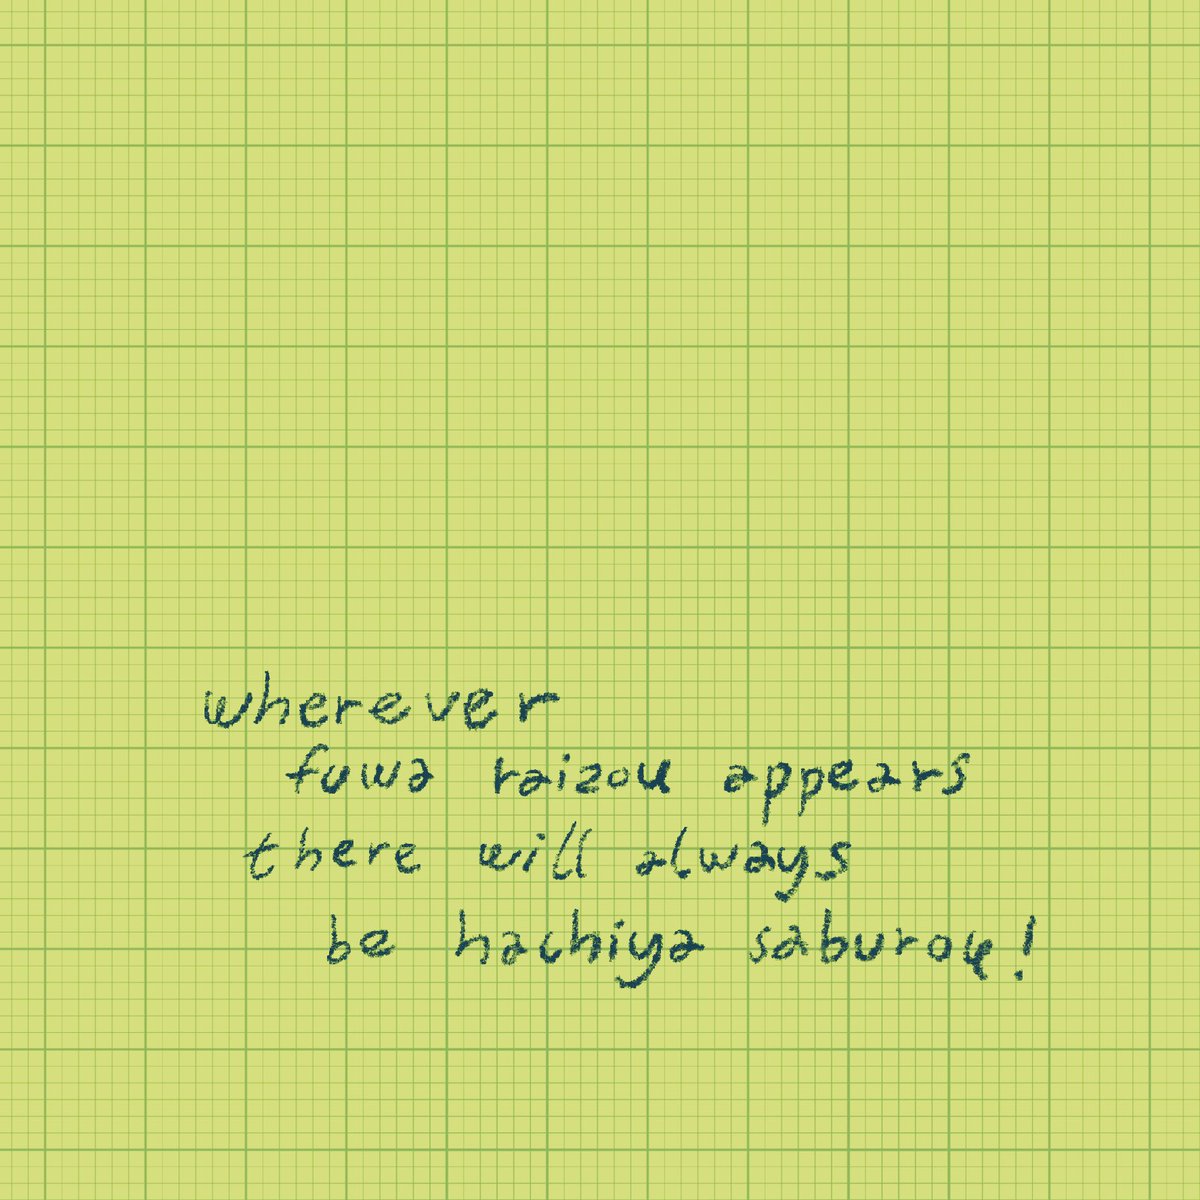 wherever
fuwa raizou appears
there will always
be hachiya saburou!